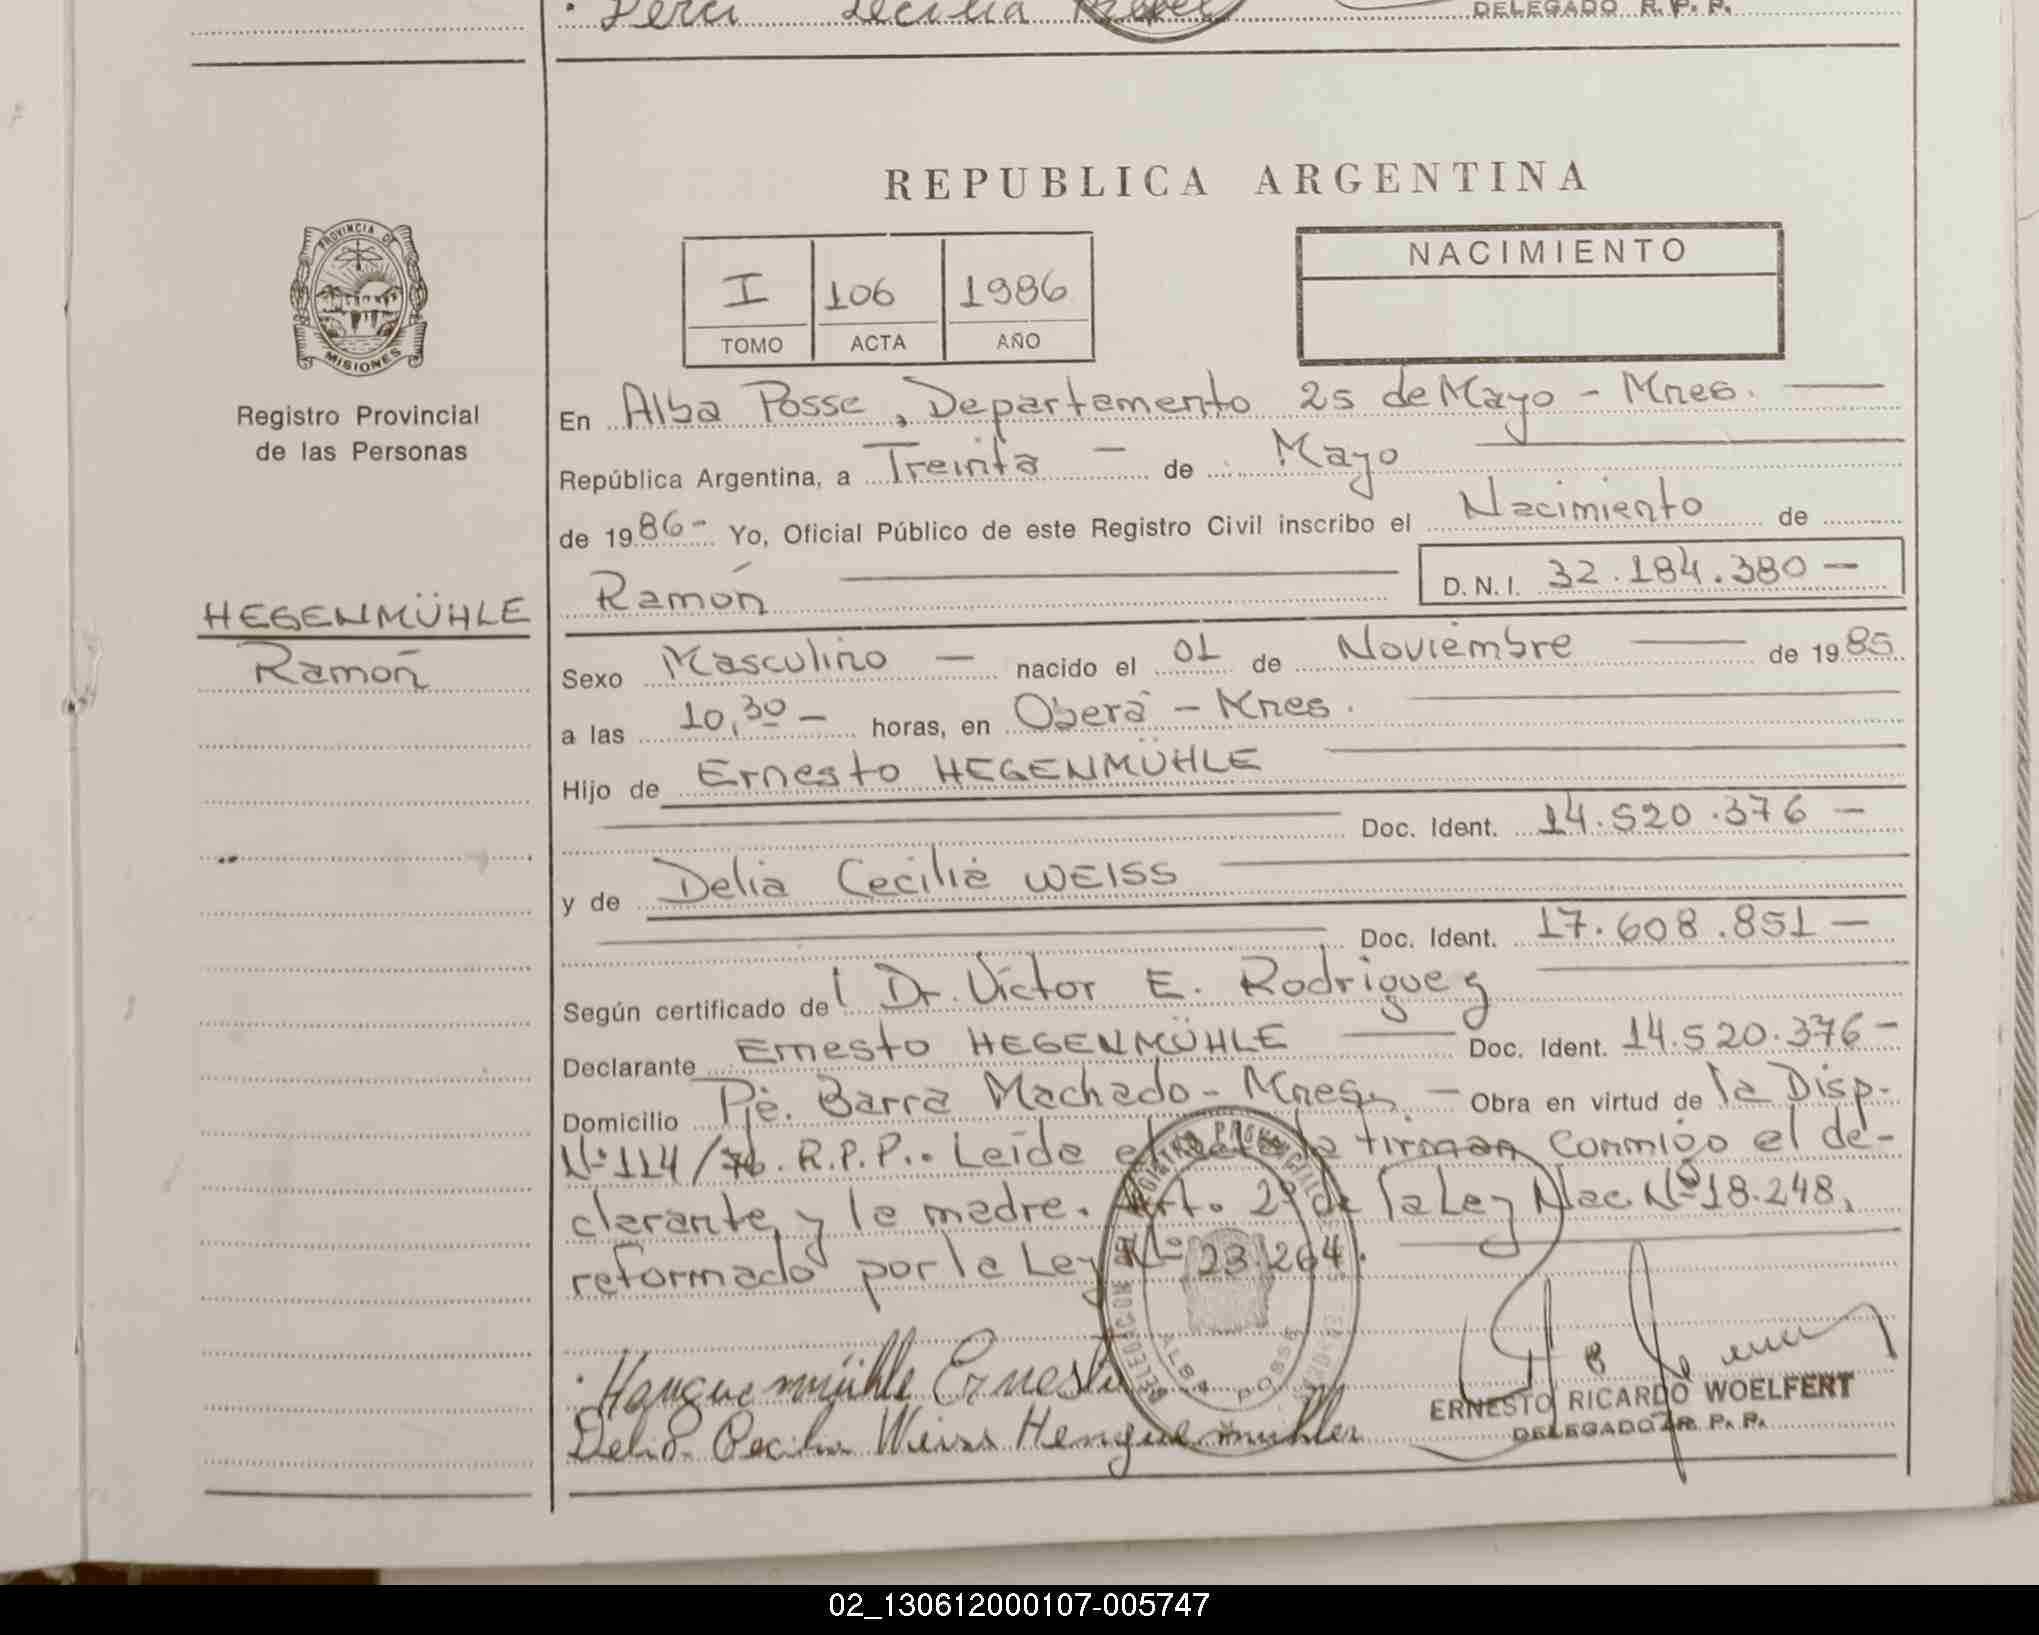 Cecilia
DELEGADO R. P. P.
REPUBLICA ARGENTINA
PROVINCIA DE
MISIONES
Registro Provincial
de las Personas
I 106 1986
TOMO ACTA AÑO
NACIMIENTO
En Alba Posse, Departamento 25 de Mayo - Mnes. —
República Argentina, a Treinta — de Mayo
de 1986- Yo, Oficial Público de este Registro Civil inscribo el Nacimiento de
Ramón D. N. I. 32.184.380 —
HEGENMÜHLE
Ramón
Sexo Masculino — nacido el 01 de Noviembre — de 1985
a las 10,30 — horas, en Oberá - Mnes.
Hijo de Ernesto HEGENMÜHLE
Doc. Ident. 14.520.376 —
y de Delia Cecilia WEISS
Doc. Ident. 17.608.851 —
Según certificado del Dr. Víctor E. Rodriguez
Declarante Ernesto HEGENMÜHLE — Doc. Ident. 14.520.376 -
Domicilio Pje. Barra Machado - Mnes. — Obra en virtud de la Disp.
Nº 114/76. R.P.P.. Leída el acta la firman conmigo el de-
clarante y la madre. Art. 2º de la Ley Nac Nº 18.248,
reformado por la Ley Nº 23.264.
DELEGACION
ALBA POSSE
Hanguemühle Ernesto
Delia Cecilia Weiss Henguemuhler
ERNESTO RICARDO WOELFERT
DELEGADO R. P. P.
02_130612000107-005747